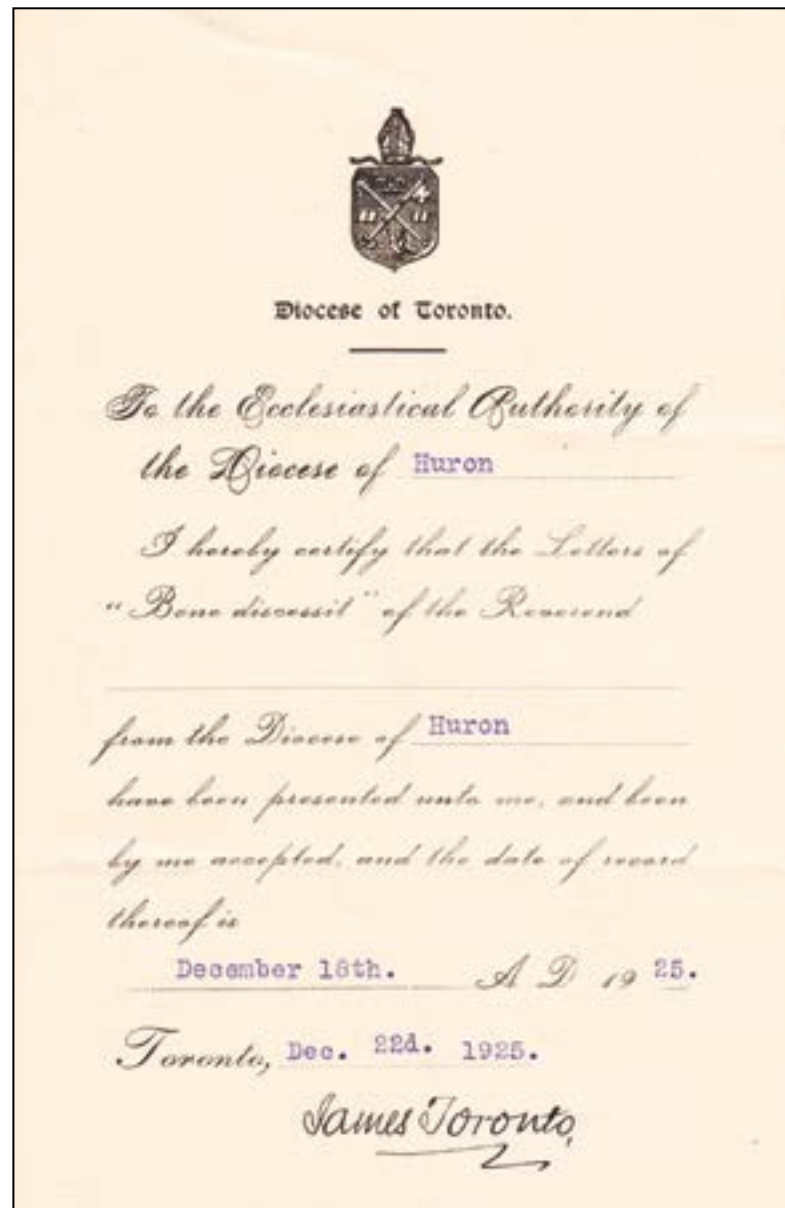 Diocese of Toronto.
To the Ecclesiastical Authority of
the Diocese of Huron
I hereby certify that the Letters of
"Bene discessit" of the Reverend
from the Diocese of Huron
have been presented unto me, and been
by me accepted, and the date of record
thereof is
December 18th. A D 19 25.
Toronto, Dec. 22d. 1925.
James Toronto,